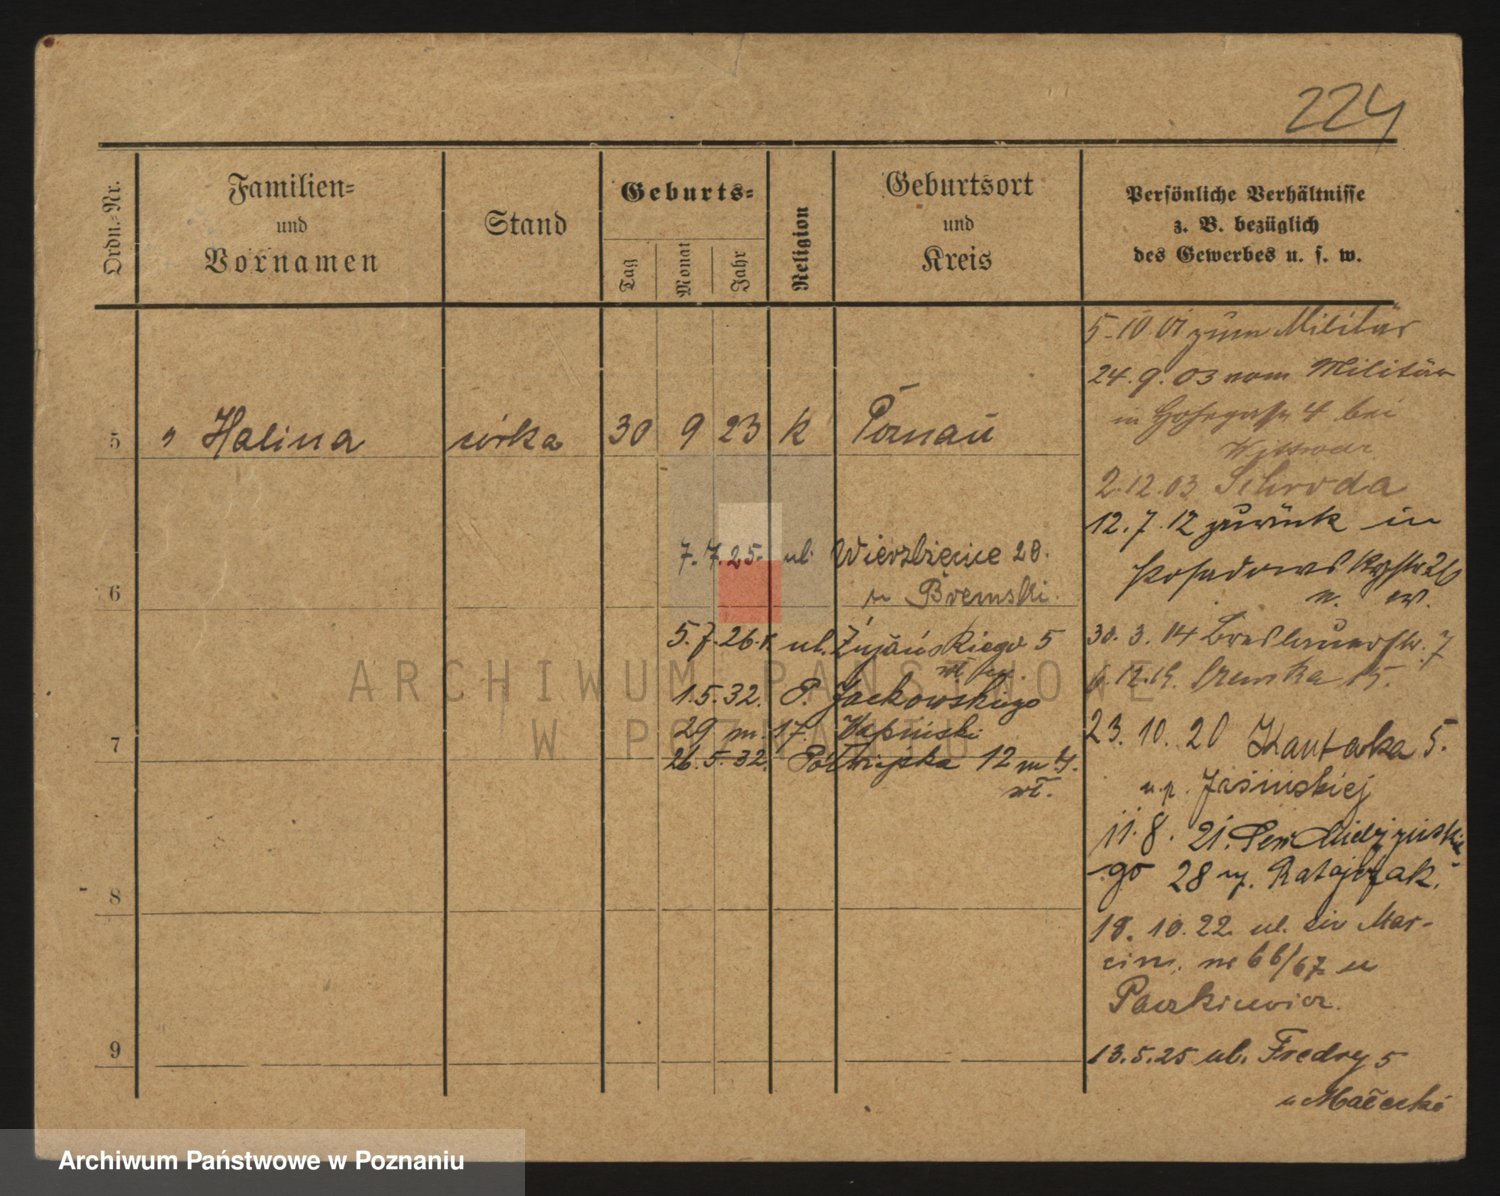 224
Ordn.-Nr.
Familien-
und
Vornamen
Stand
Geburts-
Tag
Monat
Jahr
Religion
Geburtsort
und
Kreis
Persönliche Verhältnisse
z. B. bezüglich
des Gewerbes u. s. w.
5 " Halina córka 30 9 23 k Poznań
6
7
8
9
7.7.25. ul Wierzbięcice 28.
u Bremski.
5.7.26 ul. Żupańskiego 5
1.5.32. P. Jackowskiego
29 m. 17.
26.5.32. Półwiejska 12 m 4.
5.10.01 zum Militär
24.9.03 vom Militär
in Hohegasse 4 bei
2.12.03 Schroda
12.7.12 zurück in
Posadowskystr 28
30.3.14 Breslauerstr. 7
23.10.20 Kantaka 5.
u p. Jasińskiej
11.8.21. Pierackiego
go 28 u p. Ratajczak.
18.10.22. ul. św Mar-
cin. nr 66/67 u
Paczkiewicz.
13.5.25 ul. Fredry 5
u Małecki
ARCHIWUM PAŃSTWOWE
W POZNANIU
Archiwum Państwowe w Poznaniu